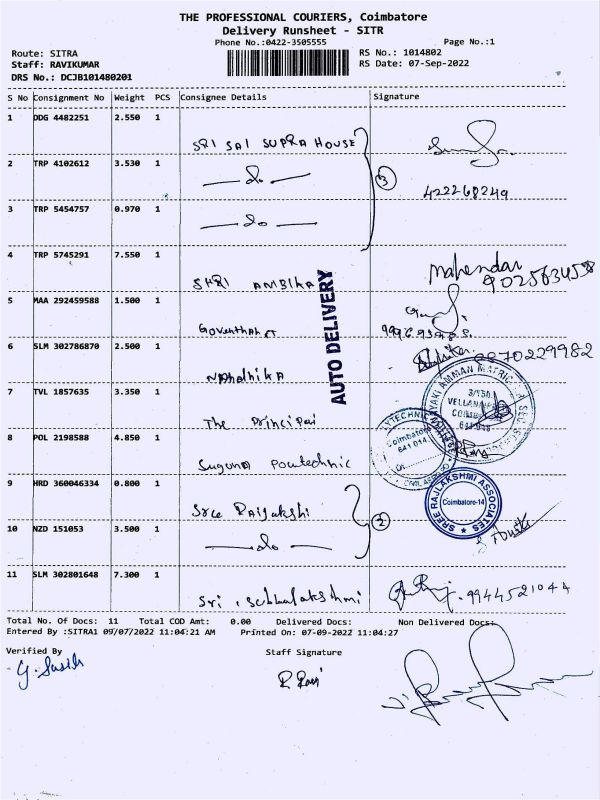 THE PROFESSIONAL COURIERS, Coimbatore
Delivery Runsheet - SITR
Phone No.:0422-3505555
Page No.:1
Route: SITRA
RS No.: 1014802
Staff: RAVIKUMAR
RS Date: 07-Sep-2022
DRS No.: DCJB101480201
S No Consignment No Weight PCS Consignee Details Signature
1 DDG 4482251 2.550 1
SRI SAI SUPRA HOUSE
2 TRP 4102612 3.530 1
— do — 3
422268249
3 TRP 5454757 0.970 1
— do —
4 TRP 5745291 7.550 1
SHRI AMBIKA Mahendar
9025634538
5 MAA 292459588 1.500 1
6 SLM 302786870 2.500 1
8870229982
AUTO DELIVERY
7 TVL 1857635 3.350 1
The Principal
8 POL 2198588 4.850 1
Coimbatore
641 014
Suguna Poutechnic
9 HRD 360046334 0.800 1
Sree Rajlakshi
SREE RAJLAKSHMI ASSOCIATES
Coimbatore-14
10 NZD 151053 3.500 1
— do — 2
11 SLM 302801648 7.300 1
Sri Subbulakshmi 9944521044
Total No. Of Docs: 11 Total COD Amt: 0.00 Delivered Docs: Non Delivered Docs:
Entered By :SITRA1 09/07/2022 11:04:21 AM Printed On: 07-09-2022 11:04:27
Verified By Staff Signature
Y. Sasik
R Ravi